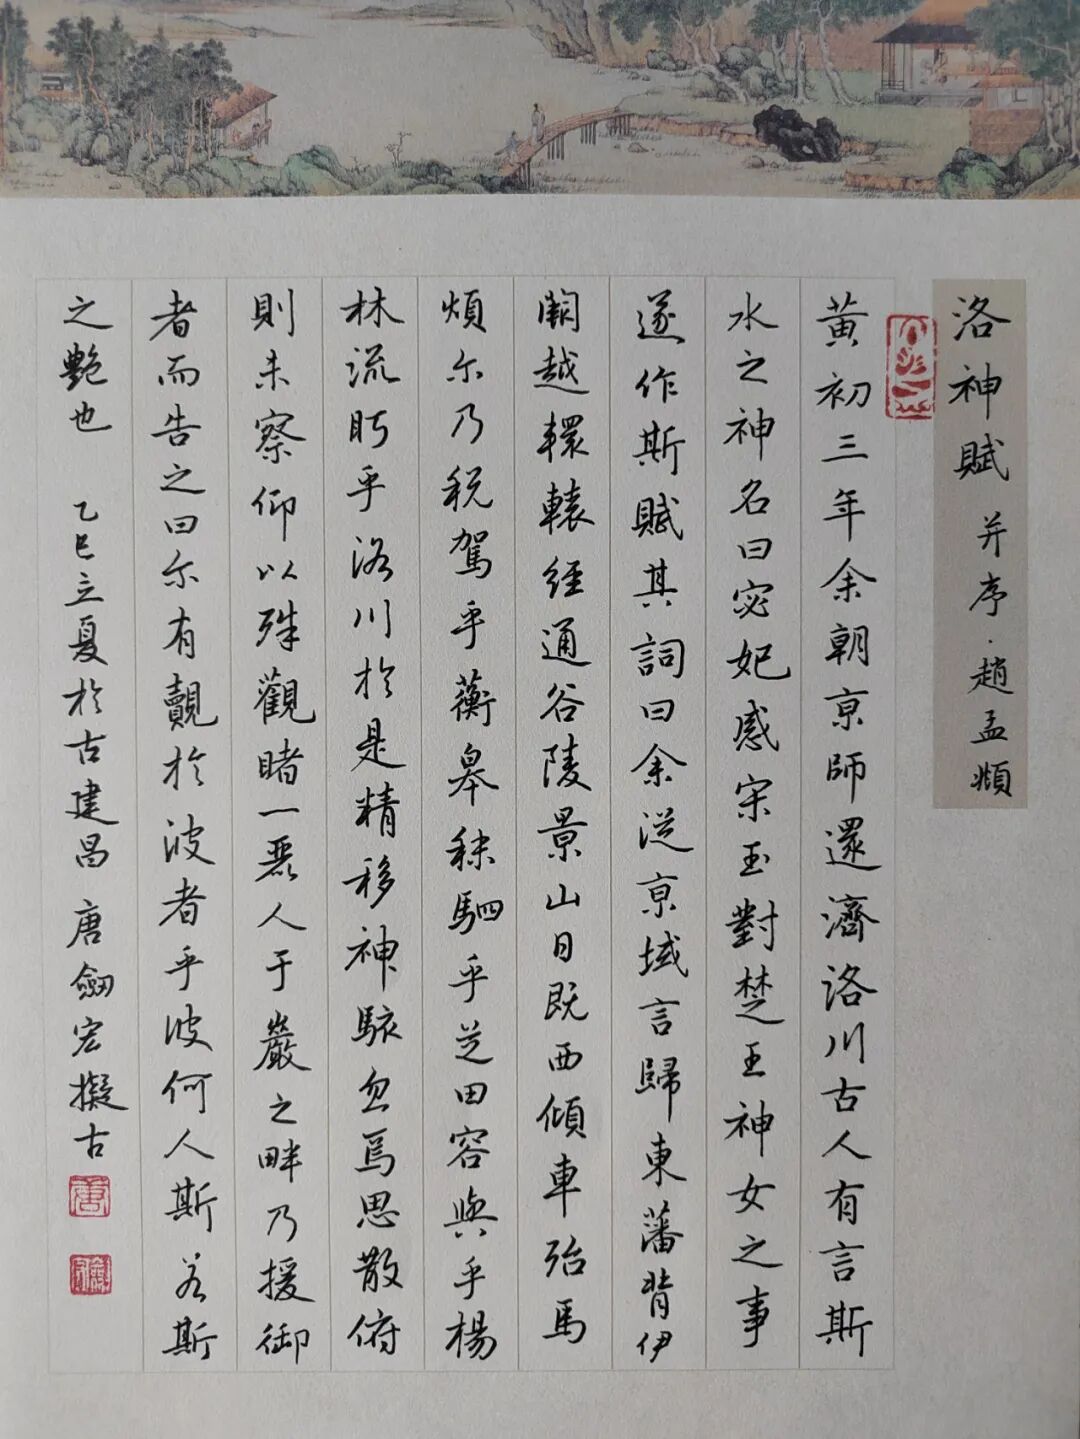 洛神賦 并序·趙孟頫
黃初三年余朝京師還濟洛川古人有言斯
水之神名曰宓妃感宋玉對楚王神女之事
遂作斯賦其詞曰余從京域言歸東藩背伊
闕越轘轅經通谷陵景山日既西傾車殆馬
煩尔乃税駕乎蘅皋秣駟乎芝田容與乎楊
林流眄乎洛川於是精移神駭忽焉思散俯
則未察仰以殊觀睹一麗人于巖之畔乃援御
者而告之曰尔有覿於彼者乎彼何人斯若斯
之艷也 乙巳立夏於古建昌 唐劒宏擬古
唐